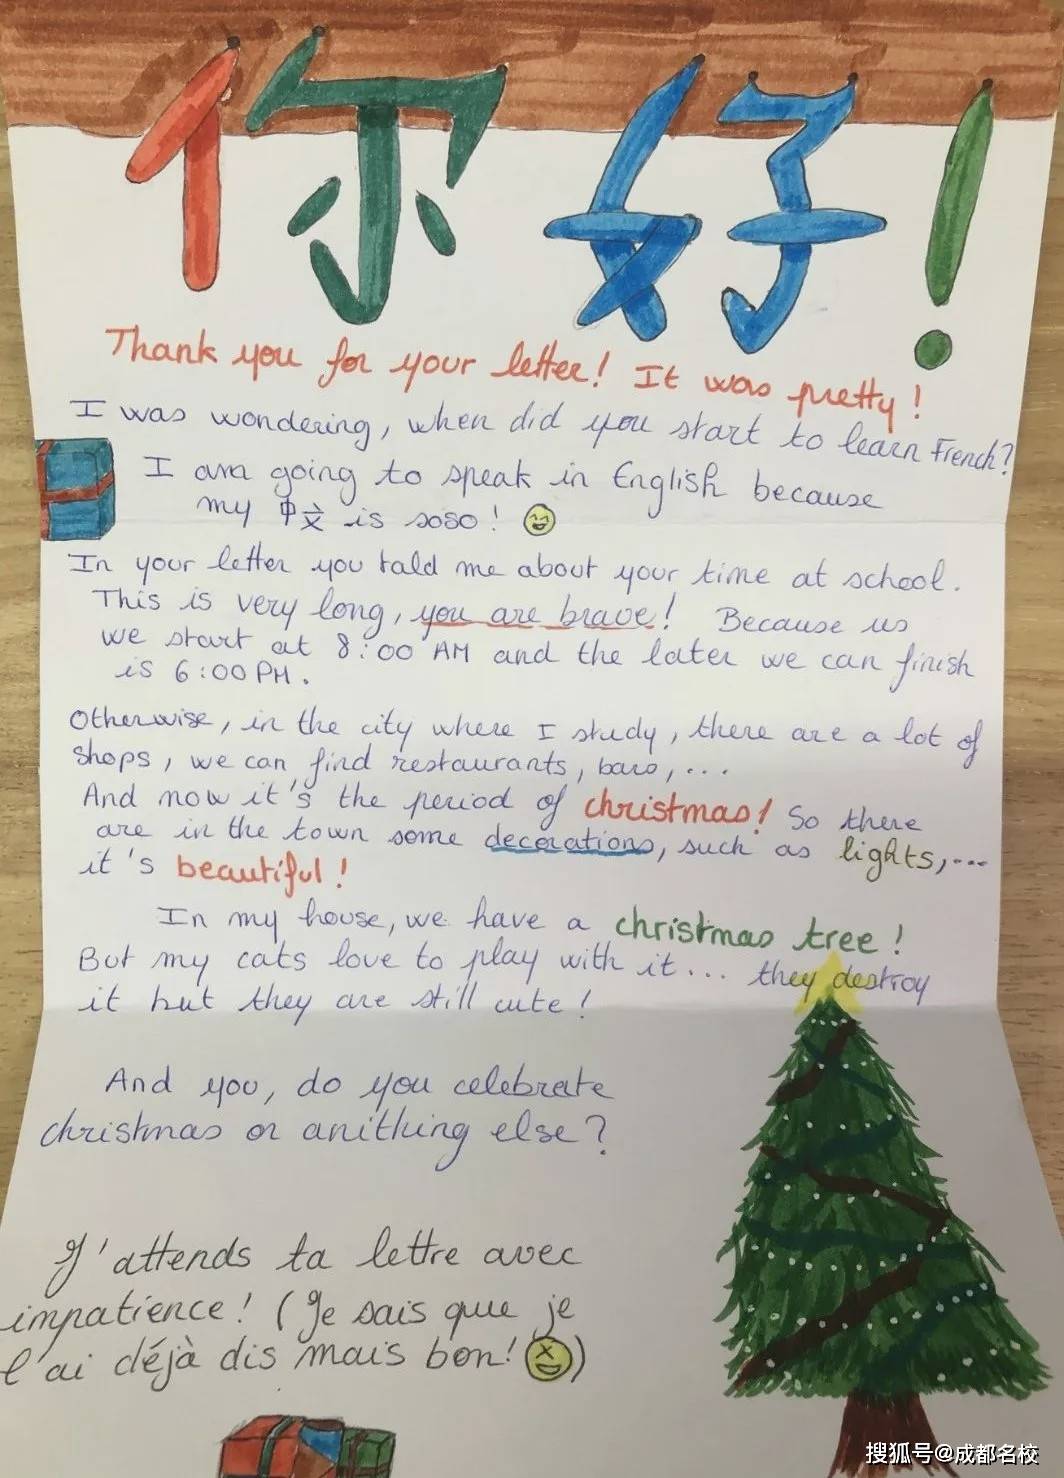 你好!
Thank you for your letter! It was pretty!
I was wondering, when did you start to learn French?
I am going to speak in English because
my 中文 is soso!
In your letter you tald me about your time at school.
This is very long, you are brave! Because us
we start at 8:00 AM and the later we can finish
is 6:00 PM.
Otherwise, in the city where I study, there are a lot of
shops, we can find restaurants, bars,...
And now it's the period of christmas! So there
are in the town some decorations, such as lights,...
it's beautiful!
In my house, we have a christmas tree!
But my cats love to play with it... they destroy
it but they are still cute!
And you, do you celebrate
christmas or anithing else?
J'attends ta lettre avec
impatience! (Je sais que je
l'ai déjà dis mais bon! )
搜狐号@成都名校